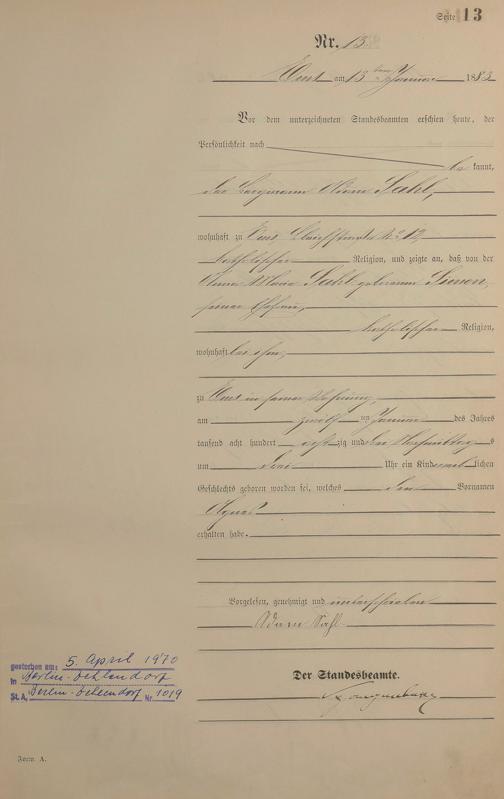 Seite 13
Nr. 13
Ems am 13 ten Januar 1883
Vor dem unterzeichneten Standesbeamten erschien heute, der
Persönlichkeit nach
be kannt,
der Bergmann Sahl,
wohnhaft zu Ems,
katholischer Religion, und zeigte an, daß von der
Anna Maria Sahl geborenen Simon,
seiner Ehefrau,
katholischer Religion,
wohnhaft bei ihm,
zu Ems in seiner Wohnung,
am zwölf ten Januar des Jahres
tausend acht hundert acht zig und drei Nachmittag s
um drei Uhr ein Kind weib lichen
Geschlechts geboren worden sei, welches den Vornamen
Agnes
erhalten habe.
Vorgelesen, genehmigt und unterschrieben
Adam Sahl
Der Standesbeamte.
gestorben am: 5. April 1970
in Berlin-Zehlendorf
St. A. Berlin-Zehlendorf Nr. 1019
Form. A.